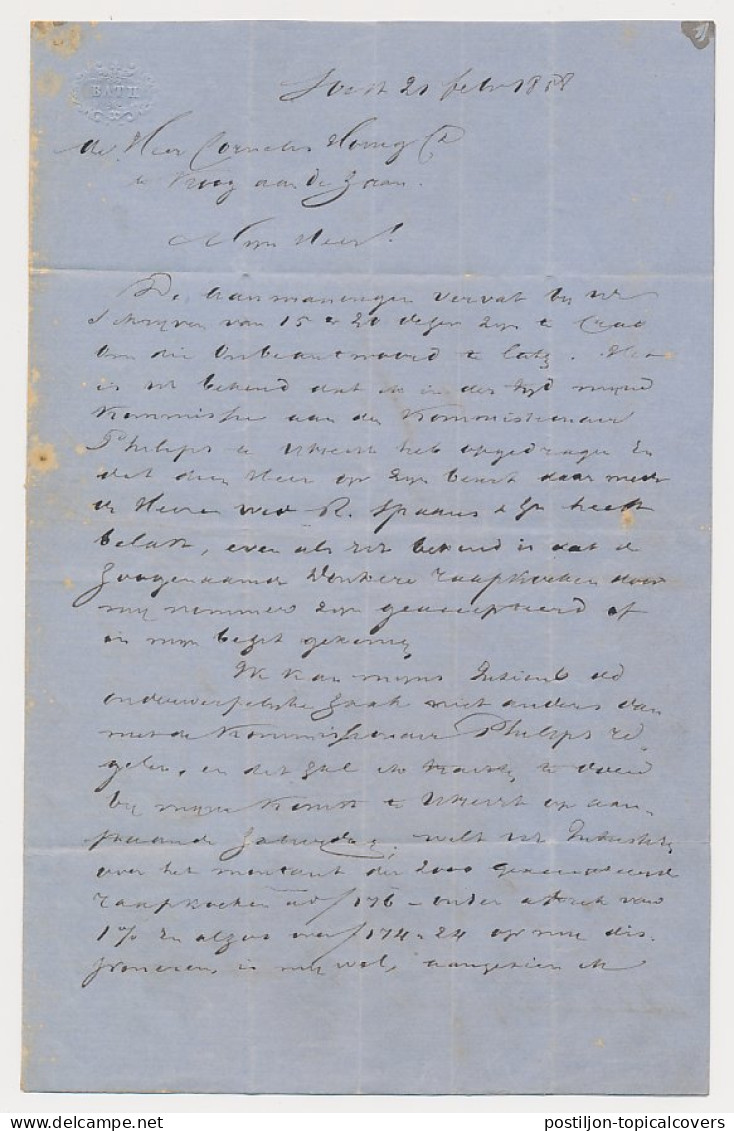 BATH
Soest 21 feb 1858
de Heer Cornelis Honig
te Koog aan de Zaan.
Mijn Heer!
De aanmaningen vervat bij Uw
Schrijven van 15 & 20 dezer zijn te
om die Onbeantwoord te laten. Het
is Uw bekend dat ik in der tijd mijne
Kommissie aan den Kommissionair
Philips te Utrecht heb opgedragen En
dat dien Heer op zijn beurt daar mede
de Heeren Wed R. Spaans & Zn heeft
belast, even als Uw bekend is dat de
Zoogenaamde Donkere raapkoeken door
mij nommers zijn geaccepteerd of
in mijn bezit gekomen
Ik kan mijns Inziens de
onderwerpelijke Zaak niet anders dan
met de Kommissionair Philips re
gelen, en dit Zal ik trachten te doen
bij mijne Komst te Utrecht op aan
staande Zaturdag, wilt Uw Intusschen
over het montant der 2000 geaccepteerde
raapkoeken ad f 176 - onder aftrek van
1% En alzoo over f 174.24 op mij dis
poneeren, is mij wel, aangezien ik
postiljon-topicalcovers